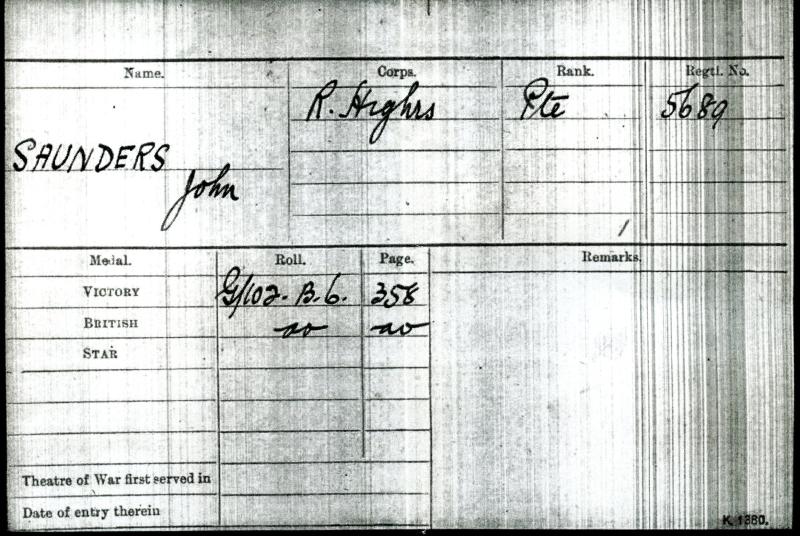 Name. Corps. Rank. Regtl. No.
R. Highrs Pte 5689
SAUNDERS
John
Medal. Roll. Page. Remarks.
VICTORY G/102. B.6. 358
BRITISH do do
STAR
Theatre of War first served in
Date of entry therein
K. 1380.